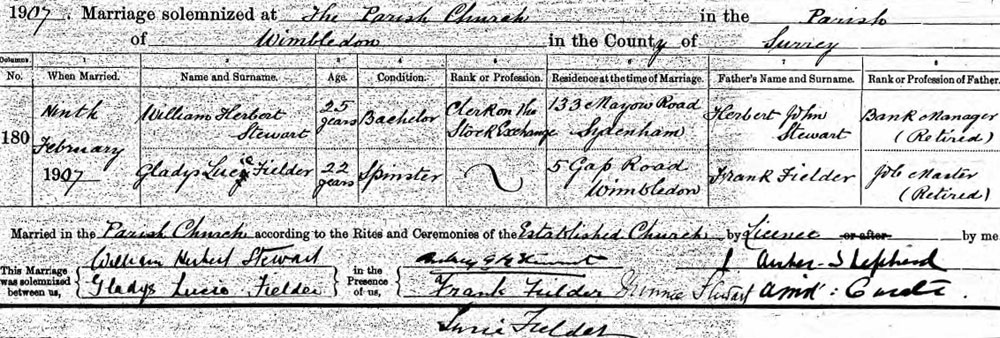 1907. Marriage solemnized at The Parish Church in the Parish
of Wimbledon in the County of Surrey
Columns. 1 2 3 4 5 6 7 8
No. When Married. Name and Surname. Age. Condition. Rank or Profession. Residence at the time of Marriage. Father's Name and Surname. Rank or Profession of Father.
180
Ninth February 1907
William Herbert Stewart 25 years Bachelor Clerk on the Stock Exchange 133 Mayow Road Sydenham Herbert John Stewart Bank Manager (Retired)
Gladys Lucie Fielder 22 years Spinster 5 Gap Road Wimbledon Frank Fielder Job Master (Retired)
Married in the Parish Church according to the Rites and Ceremonies of the Established Church by Licence or after by me
This Marriage was solemnized between us, William Herbert Stewart in the Presence of us,
Gladys Lucie Fielder Frank Fielder Minnie Stewart
Lucie Fielder